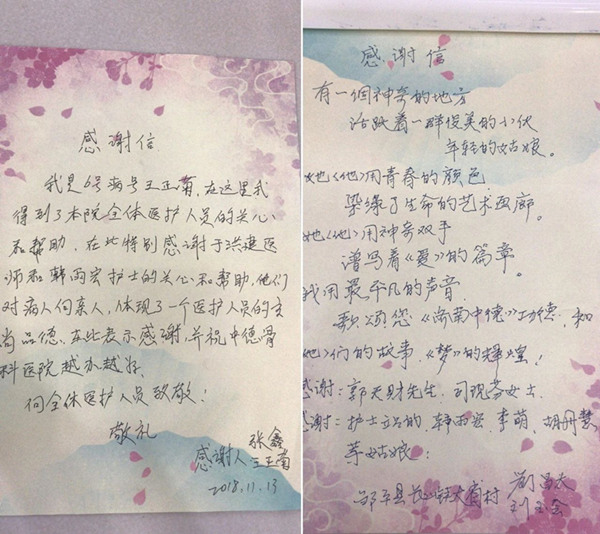 感谢信
我是6号病号王正菊,在这里我
得到了本院全体医护人员的关心
和帮助,在此特别感谢于洪建医
师和韩雨宏护士的关心和帮助,他们
对病人何亲人,体现了一个医护人员的
尚品德,在此表示感谢,并祝中德骨
科医院越办越好,
向全体医护人员致敬!
敬礼
张鑫
感谢人 王正菊
2018.11.13
感谢信
有一個神奇的地方
活跃着一群俊美的小伙
年轻的姑娘。
她(他)用青春的颜色
染绿了生命的艺术画廊。
她(他)用神奇双手
谱写着《爱》的篇章。
我用最平凡的声音
歌颂您《济南中德》功德,和
他)们的故事,《梦》的辉煌!
感谢:郭天财先生,司现芬女士
感谢:护士站的,韩雨 李萌,胡丹慧
等姑娘:
邹平县长山镇大省村 劉昌太